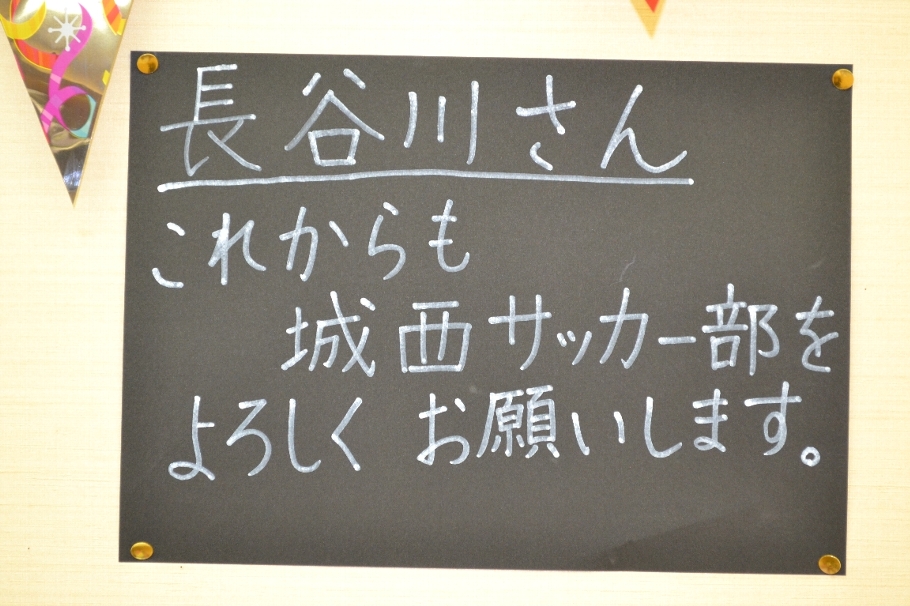 長谷川さん
これからも
城西サッカー部を
よろしく お願いします。